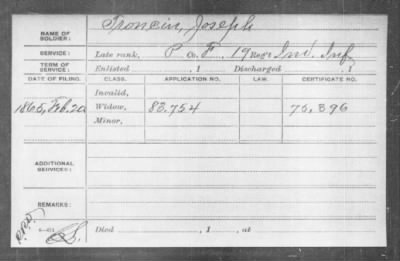 NAME OF SOLDIER: Troncin, Joseph
SERVICE: Late rank, P. Co. F, 19 Reg't Ind. Inf
TERM OF SERVICE: Enlisted , 1 Discharged , 1
DATE OF FILING. CLASS. APPLICATION NO. LAW. CERTIFICATE NO.
Invalid,
1865, Feb. 20 Widow, 83.754 75,896
Minor,
ADDITIONAL SERVICES:
REMARKS:
Died , 1 , at